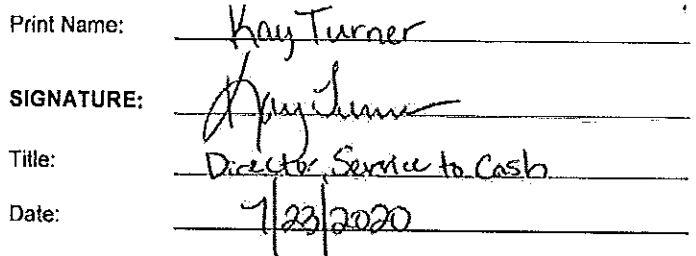 Print Name: Kay Turner
SIGNATURE: Kay Turner
Title: Director, Service to Cash
Date: 7/23/2020